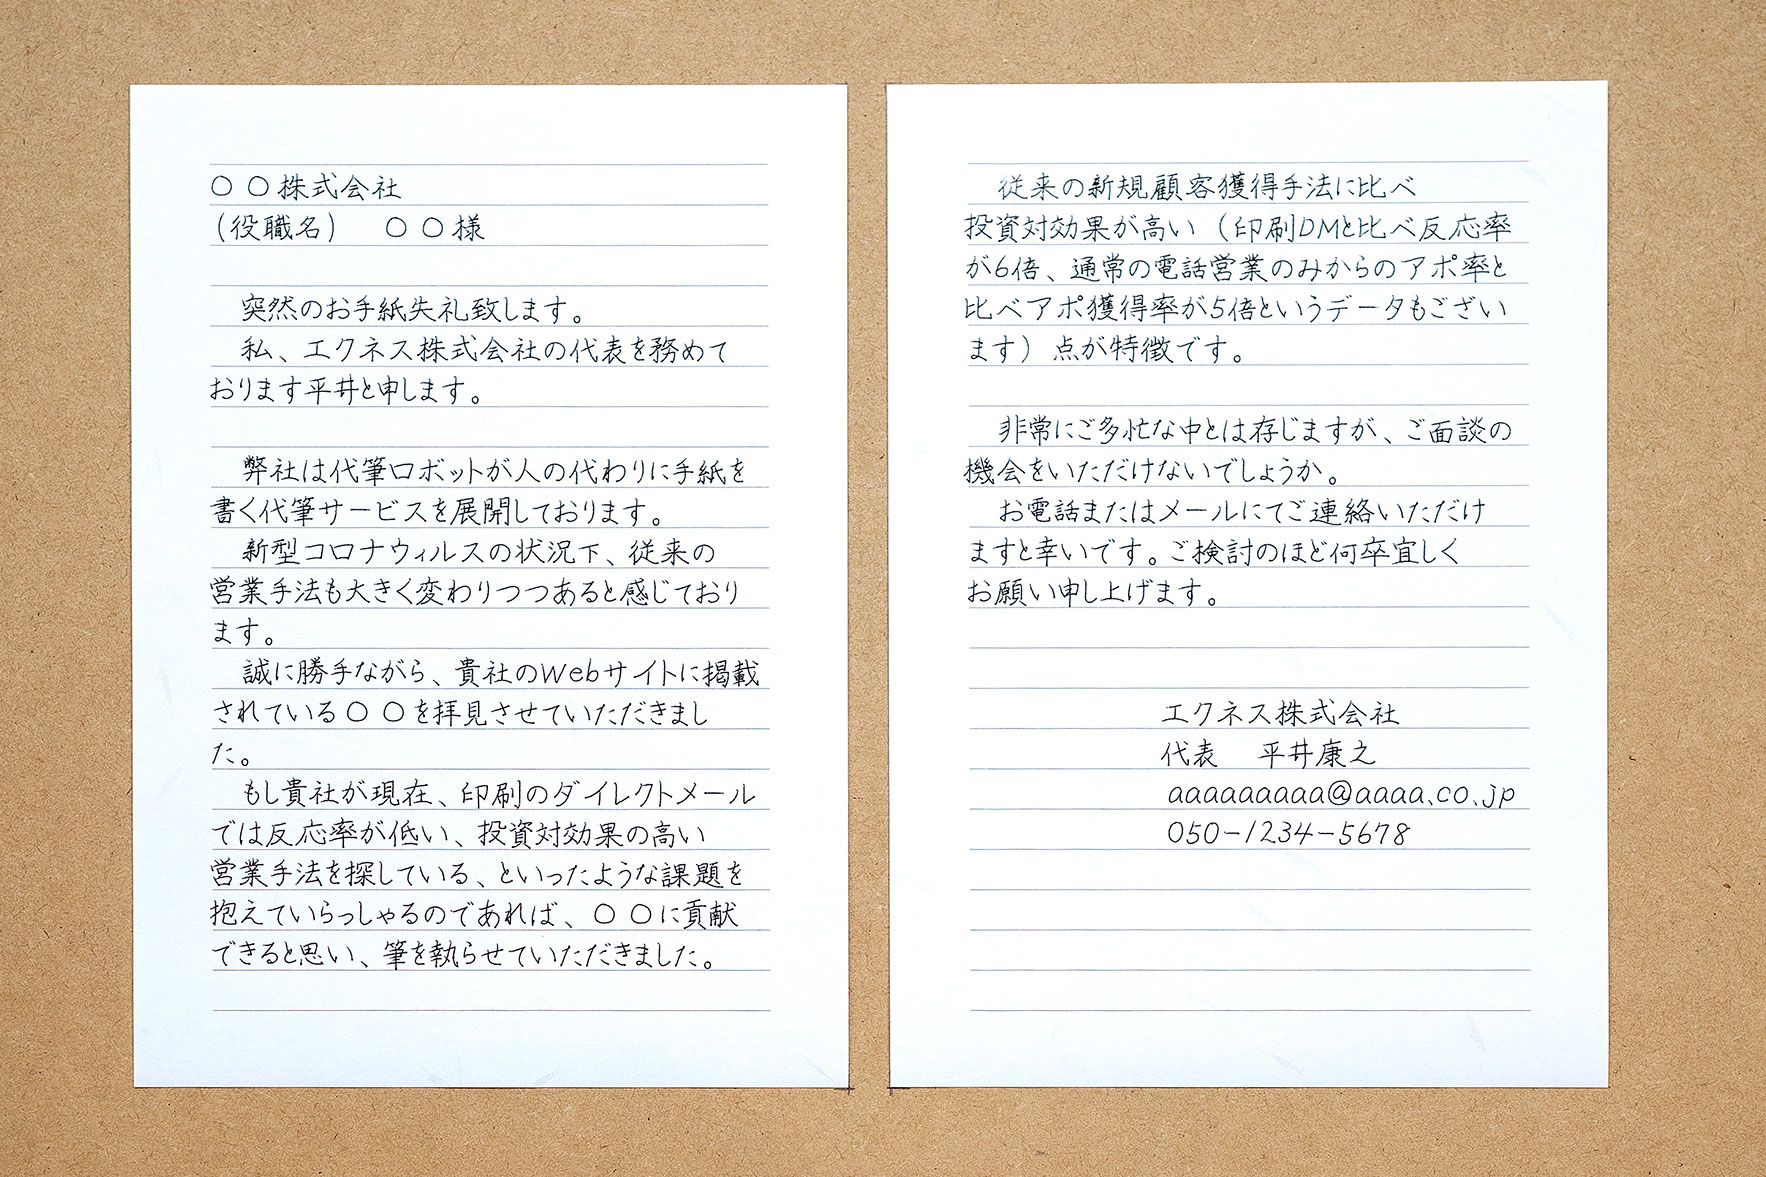 〇〇株式会社
(役職名)　〇〇様
突然のお手紙失礼致します。
私、エクネス株式会社の代表を務めて
おります平井と申します。
弊社は代筆ロボットが人の代わりに手紙を
書く代筆サービスを展開しております。
新型コロナウィルスの状況下、従来の
営業手法も大きく変わりつつあると感じており
ます。
誠に勝手ながら、貴社のWebサイトに掲載
されている〇〇を拝見させていただきまし
た。
もし貴社が現在、印刷のダイレクトメール
では反応率が低い、投資対効果の高い
営業手法を探している、といったような課題を
抱えていらっしゃるのであれば、〇〇に貢献
できると思い、筆を執らせていただきました。
従来の新規顧客獲得手法に比べ
投資対効果が高い(印刷DMと比べ反応率
が6倍、通常の電話営業のみからのアポ率と
比べアポ獲得率が5倍というデータもござい
ます)点が特徴です。
非常にご多忙な中とは存じますが、ご面談の
機会をいただけないでしょうか。
お電話またはメールにてご連絡いただけ
ますと幸いです。ご検討のほど何卒宜しく
お願い申し上げます。
エクネス株式会社
代表　平井康之
aaaaaaaaa@aaaa.co.jp
050-1234-5678